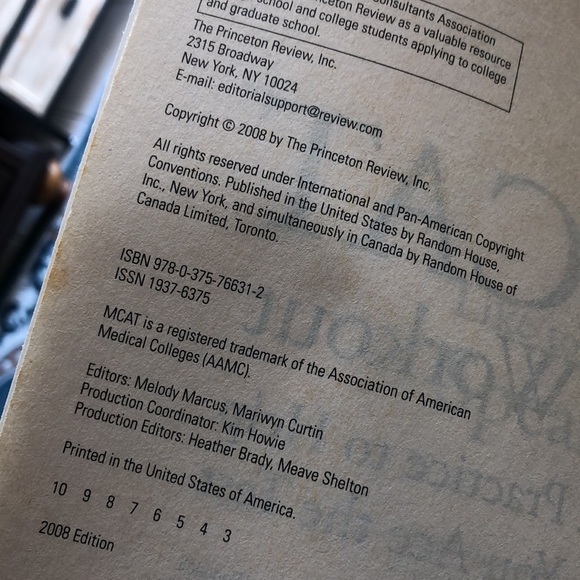 onsultants Association
nceton Review as a valuable resource
school and college students applying to college
and graduate school.
The Princeton Review, Inc.
2315 Broadway
New York, NY 10024
E-mail: editorialsupport@review.com
Copyright © 2008 by The Princeton Review, Inc.
All rights reserved under International and Pan-American Copyright
Conventions. Published in the United States by Random House,
Inc., New York, and simultaneously in Canada by Random House of
Canada Limited, Toronto.
ISBN 978-0-375-76631-2
ISSN 1937-6375
MCAT is a registered trademark of the Association of American
Medical Colleges (AAMC).
Editors: Melody Marcus, Mariwyn Curtin
Production Coordinator: Kim Howie
Production Editors: Heather Brady, Meave Shelton
Printed in the United States of America.
10 9 8 7 6 5 4 3
2008 Edition